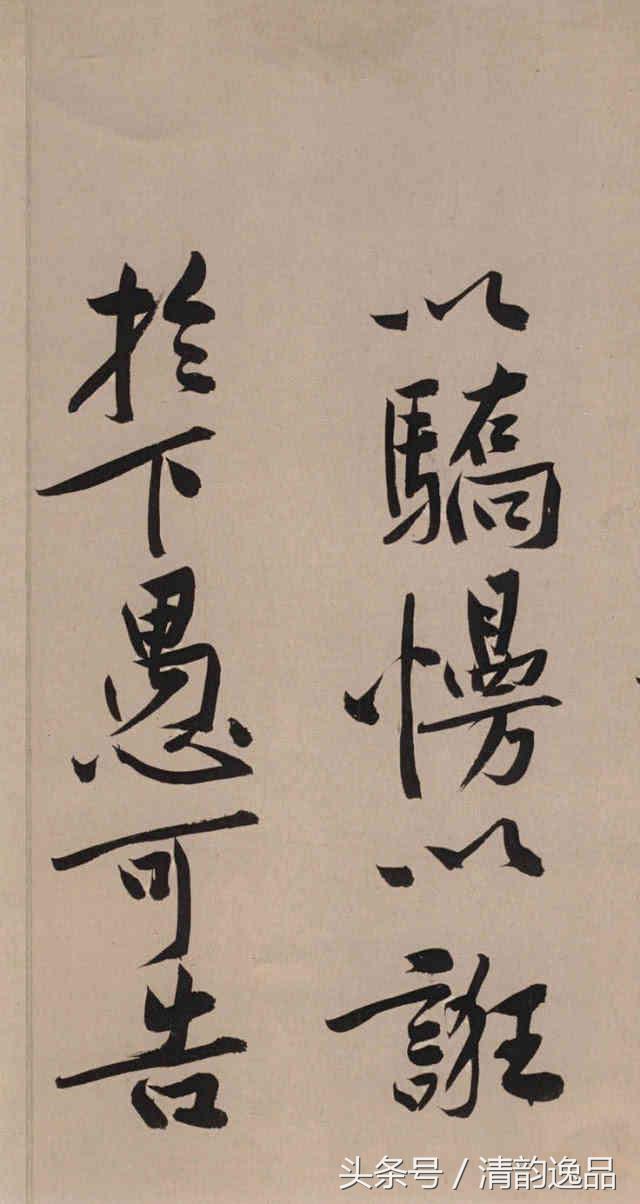 以驕慢以誑
於下愚可告
头条号 / 清韵逸品